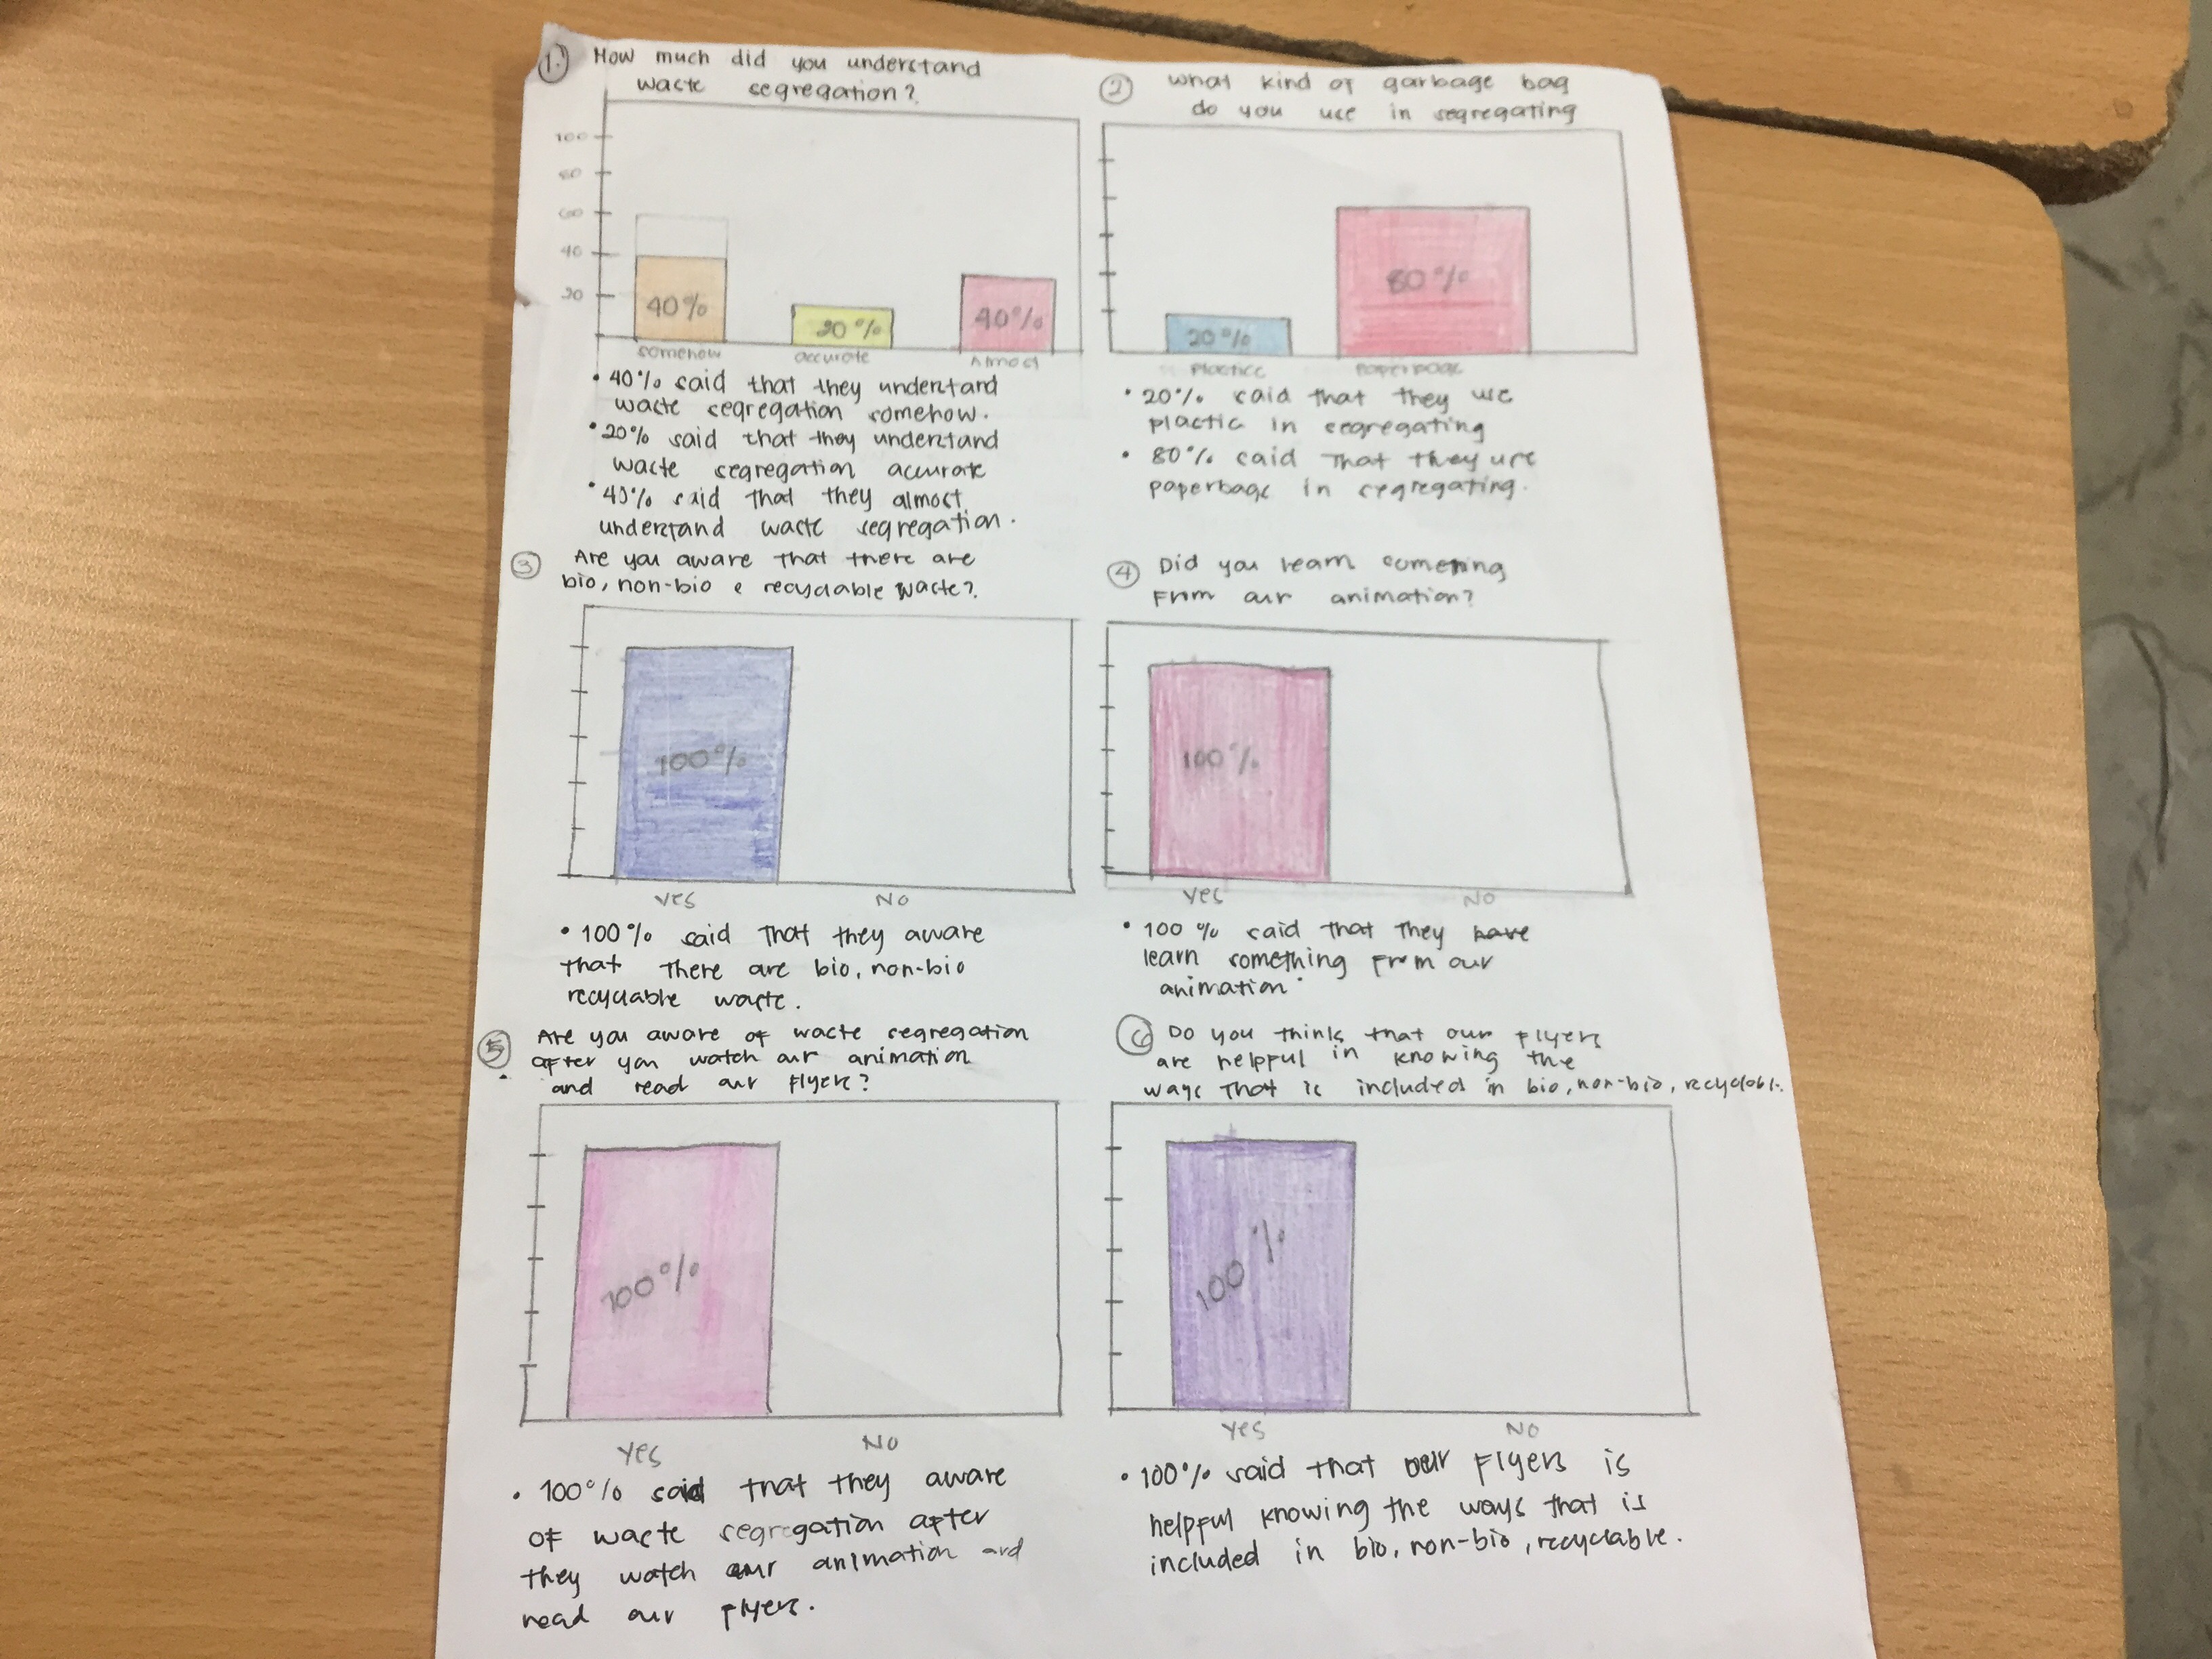 1. How much did you understand
waste segregation?
100
80
60
40
20
40%
20%
40%
somehow
accurate
Almost
• 40% said that they understand
waste segregation somehow.
• 20% said that they understand
waste segregation accurate
• 40% said that they almost
understand waste segregation.
2 what kind of garbage bag
do you use in segregating
20%
80%
plastics
paperbag
• 20% said that they use
plastic in segregating
• 80% said that they use
paperbags in segregating.
3 Are you aware that there are
bio, non-bio e recyclable waste?
100%
YES
NO
• 100% said that they aware
that there are bio, non-bio
recyclable waste.
4 Did you learn someting
From our animation?
100%
YES
NO
• 100% said that they have
learn something from our
animation.
5 Are you aware of waste segregation
• after you watch our animation
and read our flyers?
100%
YES
NO
• 100% said that they aware
of waste segregation after
they watch our animation and
read our flyers.
6 Do you thinks that our Flyers
are helpful in knowing the
ways that is included in bio, non-bio, recyclable.
100%
YES
NO
• 100% said that our Flyers is
helpful knowing the ways that is
included in bio, non-bio, recyclable.